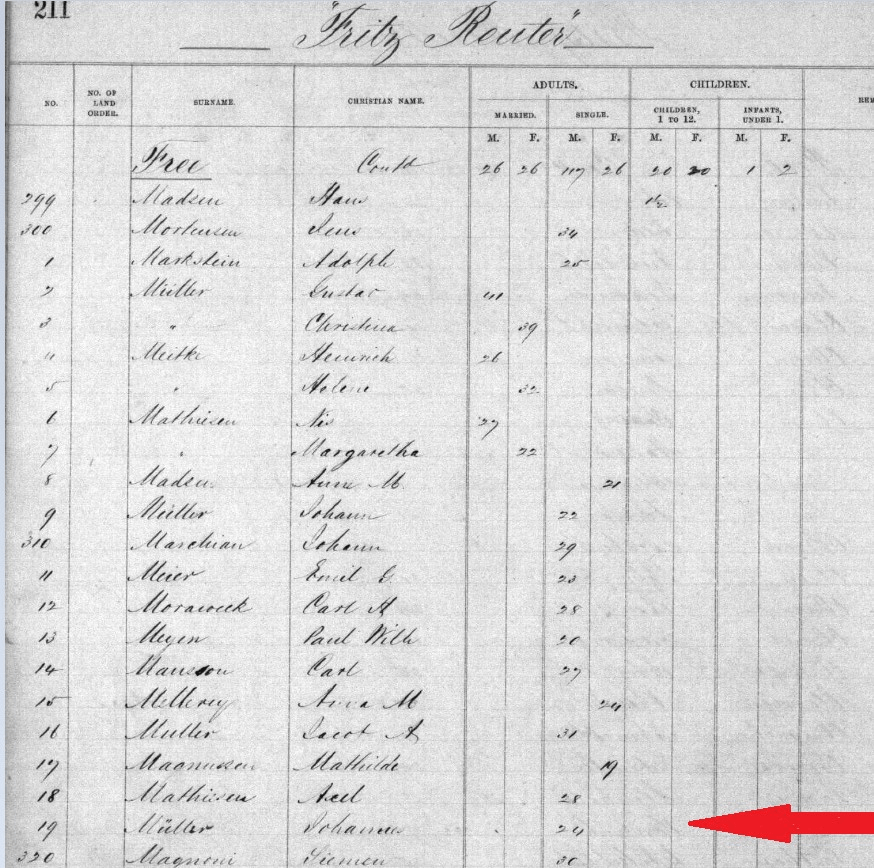 211
"Fritz Reuter"
NO. NO. OF LAND ORDER. SURNAME. CHRISTIAN NAME. ADULTS. CHILDREN. REM
MARRIED. SINGLE. CHILDREN, 1 TO 12. INFANTS, UNDER 1.
M. F. M. F. M. F. M. F.
Free Contd 26 26 117 26 20 20 1 2
299 Madsen Hans
300 Mortensen Jens 34
1 Markstein Adolph 25
2 Müller Gustav 41
3 " Christina 39
4 Meitke Heinrich 26
5 " Helene 32
6 Mathiesen Nis 27
7 " Margaretha 22
8 Madsen Anne M. 21
9 Müller Johann 22
310 Marchian Johann 29
11 Meier Emil G. 23
12 Moraweck Carl A 28
13 Meyen Paul Wilh 20
14 Mansson Carl 27
15 Anna M 24
16 Muller Jacob A 31
17 Magnussen Mathilde 19
18 Mathiesen Axel 28
19 Müller Johannes 24
320 Magnoni Siemen 30